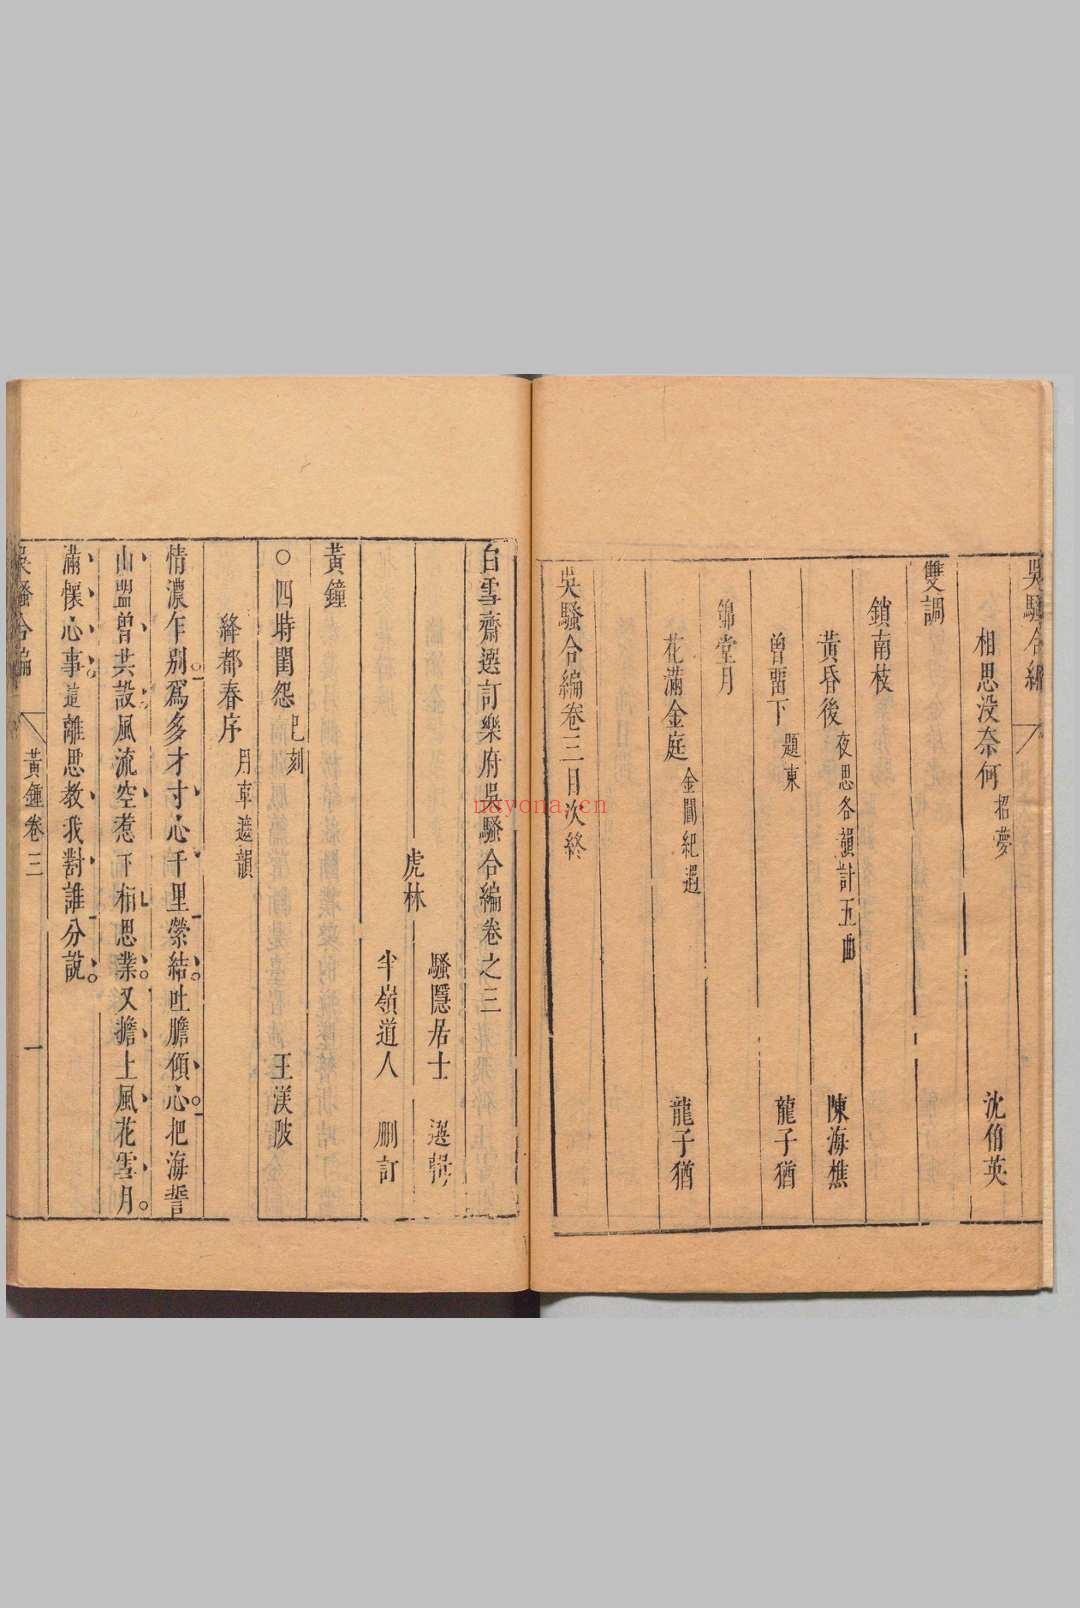 吳騷合編
相思没奈何 招夢 沈伯英
雙調
鎖南枝
黃昏後 夜思各韻計五曲 陳海樵
曾畱下 題柬 龍子猶
錦堂月
花滿金庭 金閶紀遇 龍子猶
吳騷合編卷三目次終
白雪齋選訂樂府吳騷合編卷之三
騷隱居士 選輯
虎林
半嶺道人 刪訂
黃鐘
○四時閨怨 已刻 王渼陂
絳都春序 月車遮韻
情濃乍別爲多才寸心千里縈結吐膽傾心把海誓
山盟曾共設風流空惹下相思業又擔上風花雪月
滿懷心事這離思教我對誰分說
吳騷合編 黃鍾卷三 一
nayona.cn